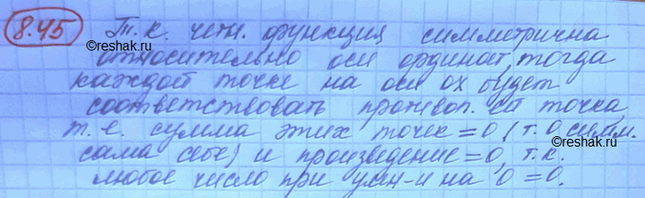 8.45 Т.к. четн. функция симметрична
©reshak.ru
относительно оси ординат, тогда
каждой точке на оси ох будет
соответствовать противоп. ей точка
т.е. сумма этих точек =0 (т. 0 симм.
сама себе) и произведение =0, т.к.
©reshak.ru
любое число при умн-и на 0 =0.